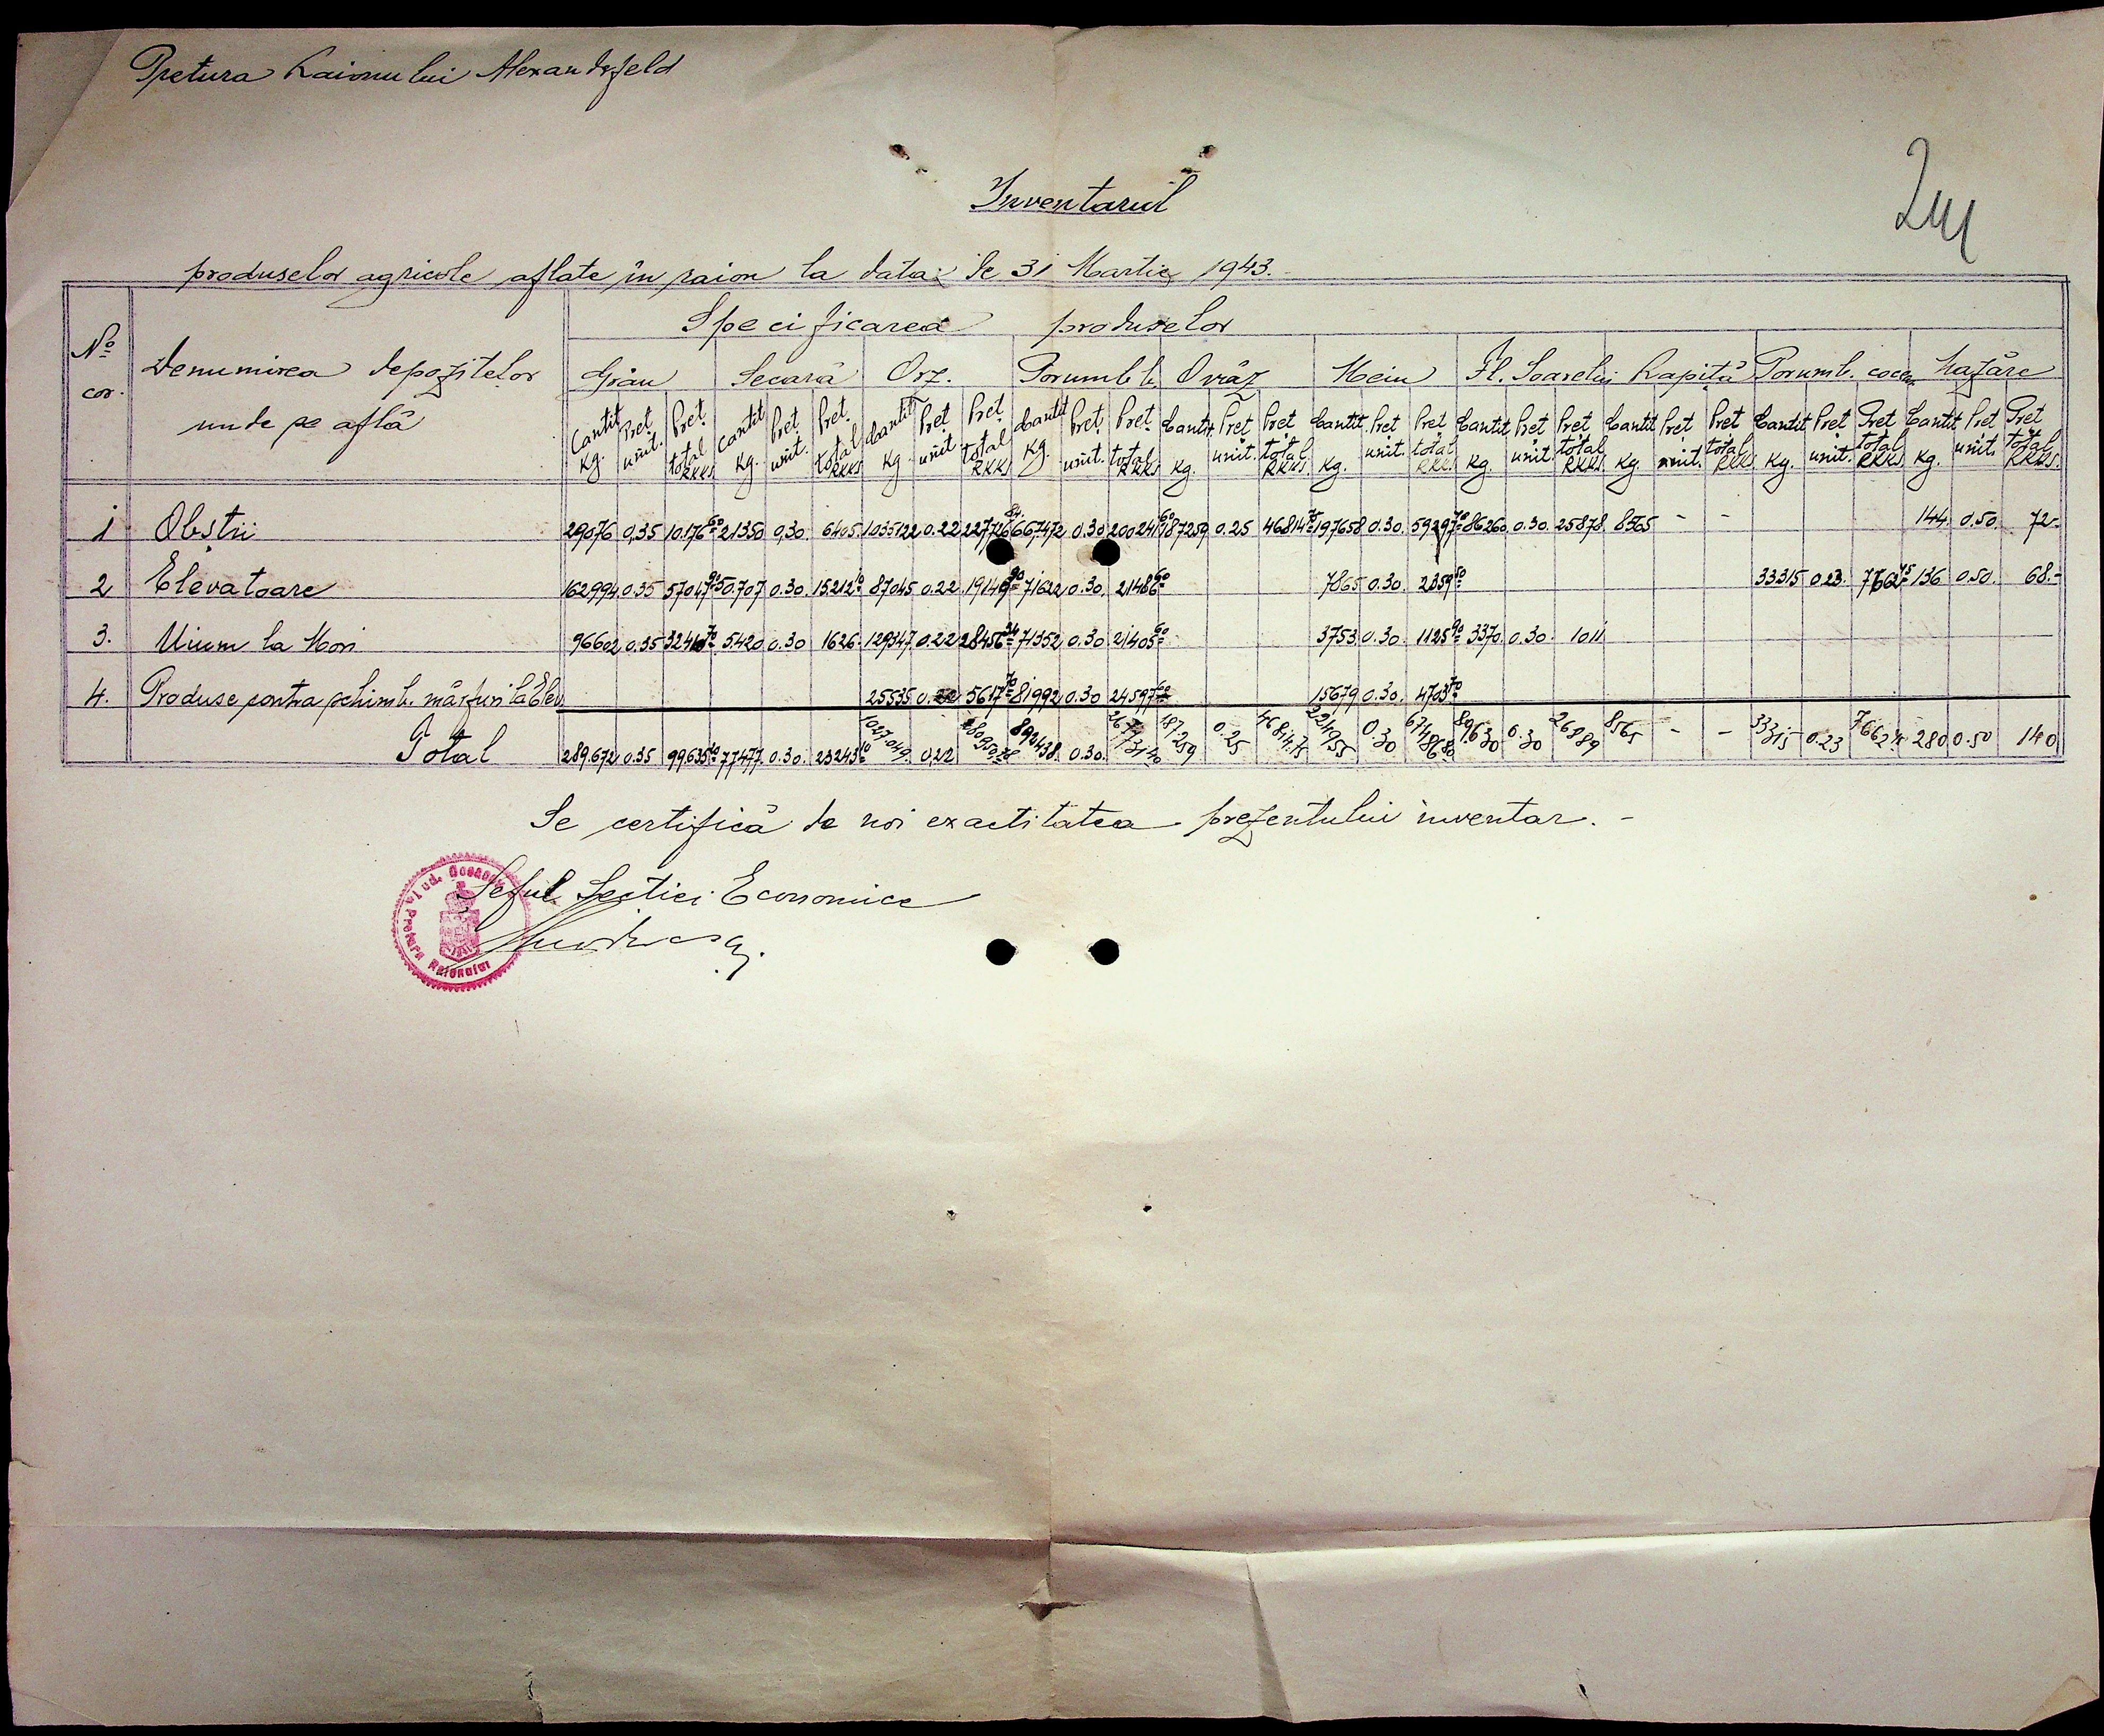 Pretura Raionului Alexanderfeld
Inventarul
produselor agricole aflate în raion la data de 31 Martie 1943.
No cor.
Denumirea depozitelor unde se află
Specificarea produselor
Grâu Secară Orz. Porumb b. Ovăz Mein Fl. Soarelui Rapiță Porumb. coceni Mazăre
Cantit kg. Preț unit. Preț total RKKS Cantit kg. Preț unit. Preț total RKKS Cantit kg. Preț unit. Preț total RKKS Cantit kg. Preț unit. Preț total RKKS Cantit kg. Preț unit. Preț total RKKS Cantit kg. Preț unit. Preț total RKKS Cantit kg. Preț unit Preț total RKKS Cantit kg Preț unit. Preț total RKKS Cantit kg. Preț unit. Preț total RKKS Cantit kg. Preț unit. Preț total RKKS.
1 Obștii 29076 0,35 10.176 60 21350 0,30. 6405. 1035122 0.22 227726 84 667472 0.30 200241 60 187259 0.25 46814 75 197658 0.30. 59297 40 86260 0.30 25878. 8565 - - 144. 0.50. 72.-
2 Elevatoare 162994 0.35 57047 90 50.707 0.30. 15.212 10 87045 0.22. 19149 90 71622 0.30. 21486 60 7865 0.30. 2359 50 33315 0.23. 7662 45 136 0.50. 68.-
3. Uium la Mori 96602 0.35 5.420 0.30 1626. 129347 0.22 28456 34 71352 0.30 21405 60 3753 0.30. 1125 90 3370. 0.30. 1011
4. Produse contra schimb. mărfuri la Elev. 25535 0.22 5617 70 81992 0.30 24597 60 15679 0.30. 4703 70
Total 289.672 0.35 99635 20 77477. 0.30. 23243 10 0,22 892438. 0.30. 187259 0.25 46814.75 224955 0.30 67486 50 89630 0.30 26889 8565 - - 33315 0.23 7662.45 280 0.50 140
Se certifică de noi exactitatea prezentului inventar. -
Șeful Secției Economice
Pretura Raionului